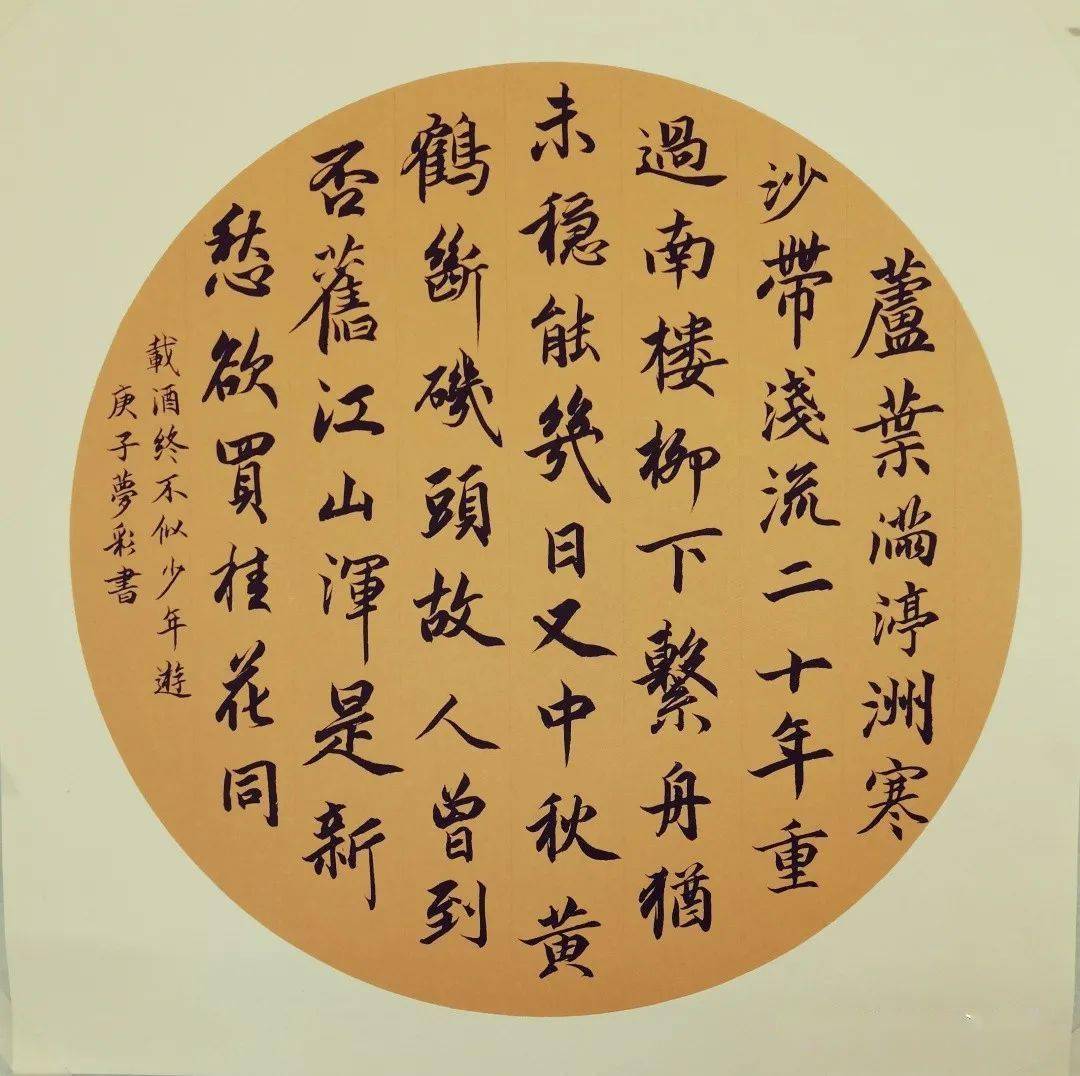 蘆葉滿渟洲寒
沙帶淺流二十年重
過南樓柳下繫舟猶
未穩能幾日又中秋黄
鶴斷磯頭故人曾到
否舊江山渾是新
愁欲買桂花同
載酒終不似少年遊
庚子夢彩書